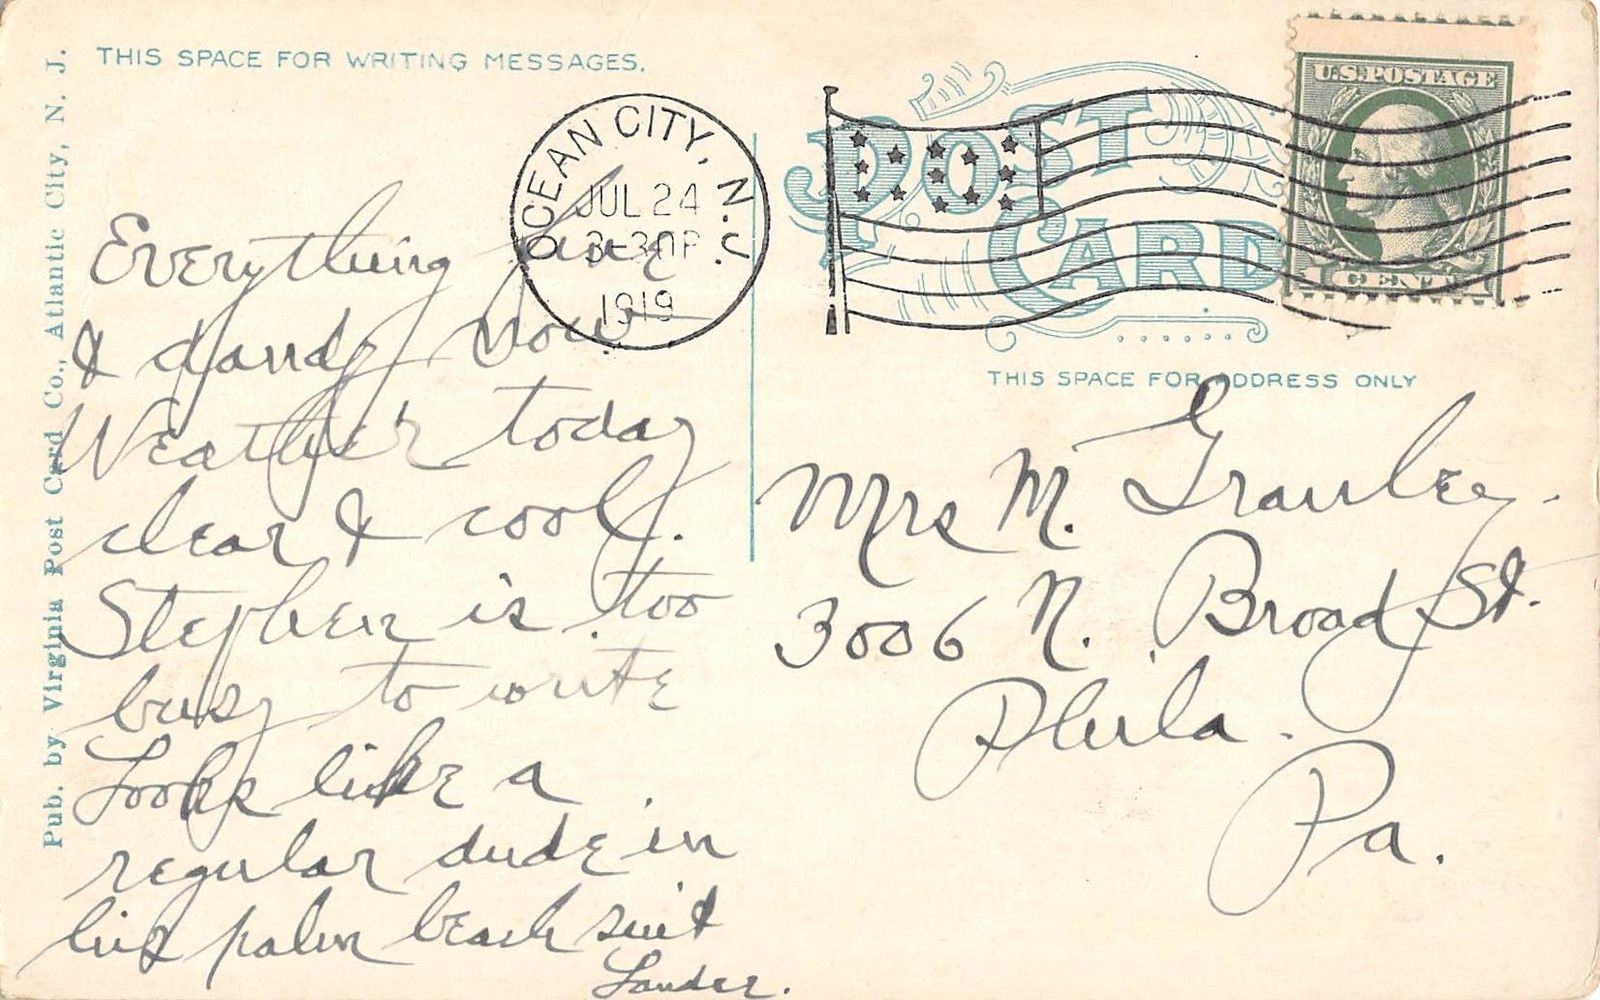 THIS SPACE FOR WRITING MESSAGES.
Pub. by Virginia Post Card Co., Atlantic City, N. J.
OCEAN CITY, N.J.
JUL 24
3-30P
1919
POST CARD
U.S. POSTAGE
1 CENT 1
THIS SPACE FOR ADDRESS ONLY
Everything fine
& dandy now
Weather today
clear & cool.
Stephen is too
busy to write
Looks like a
regular dude in
his palm beach suit
Mrs M. Granley.
3006 N. Broad St.
Phila.
Pa.